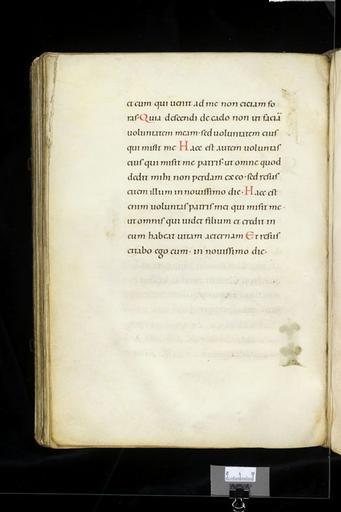 et eum qui uenit ad me non eiciam fo
ras. Quia descendi de caelo non ut faciā
uoluntatem meam. sed uoluntatem eius
qui misit me. Haec est autem uoluntas
eius qui misit me patris. ut omne quod
dedit mihi non perdam ex eo. sed resus
citem illum in nouissimo die. Haec est
enim uoluntas patris mei qui misit me.
ut omnis qui uidet filium et credit in
eum habeat uitam aeternam Et resus
citabo ego eum. in nouissimo die.